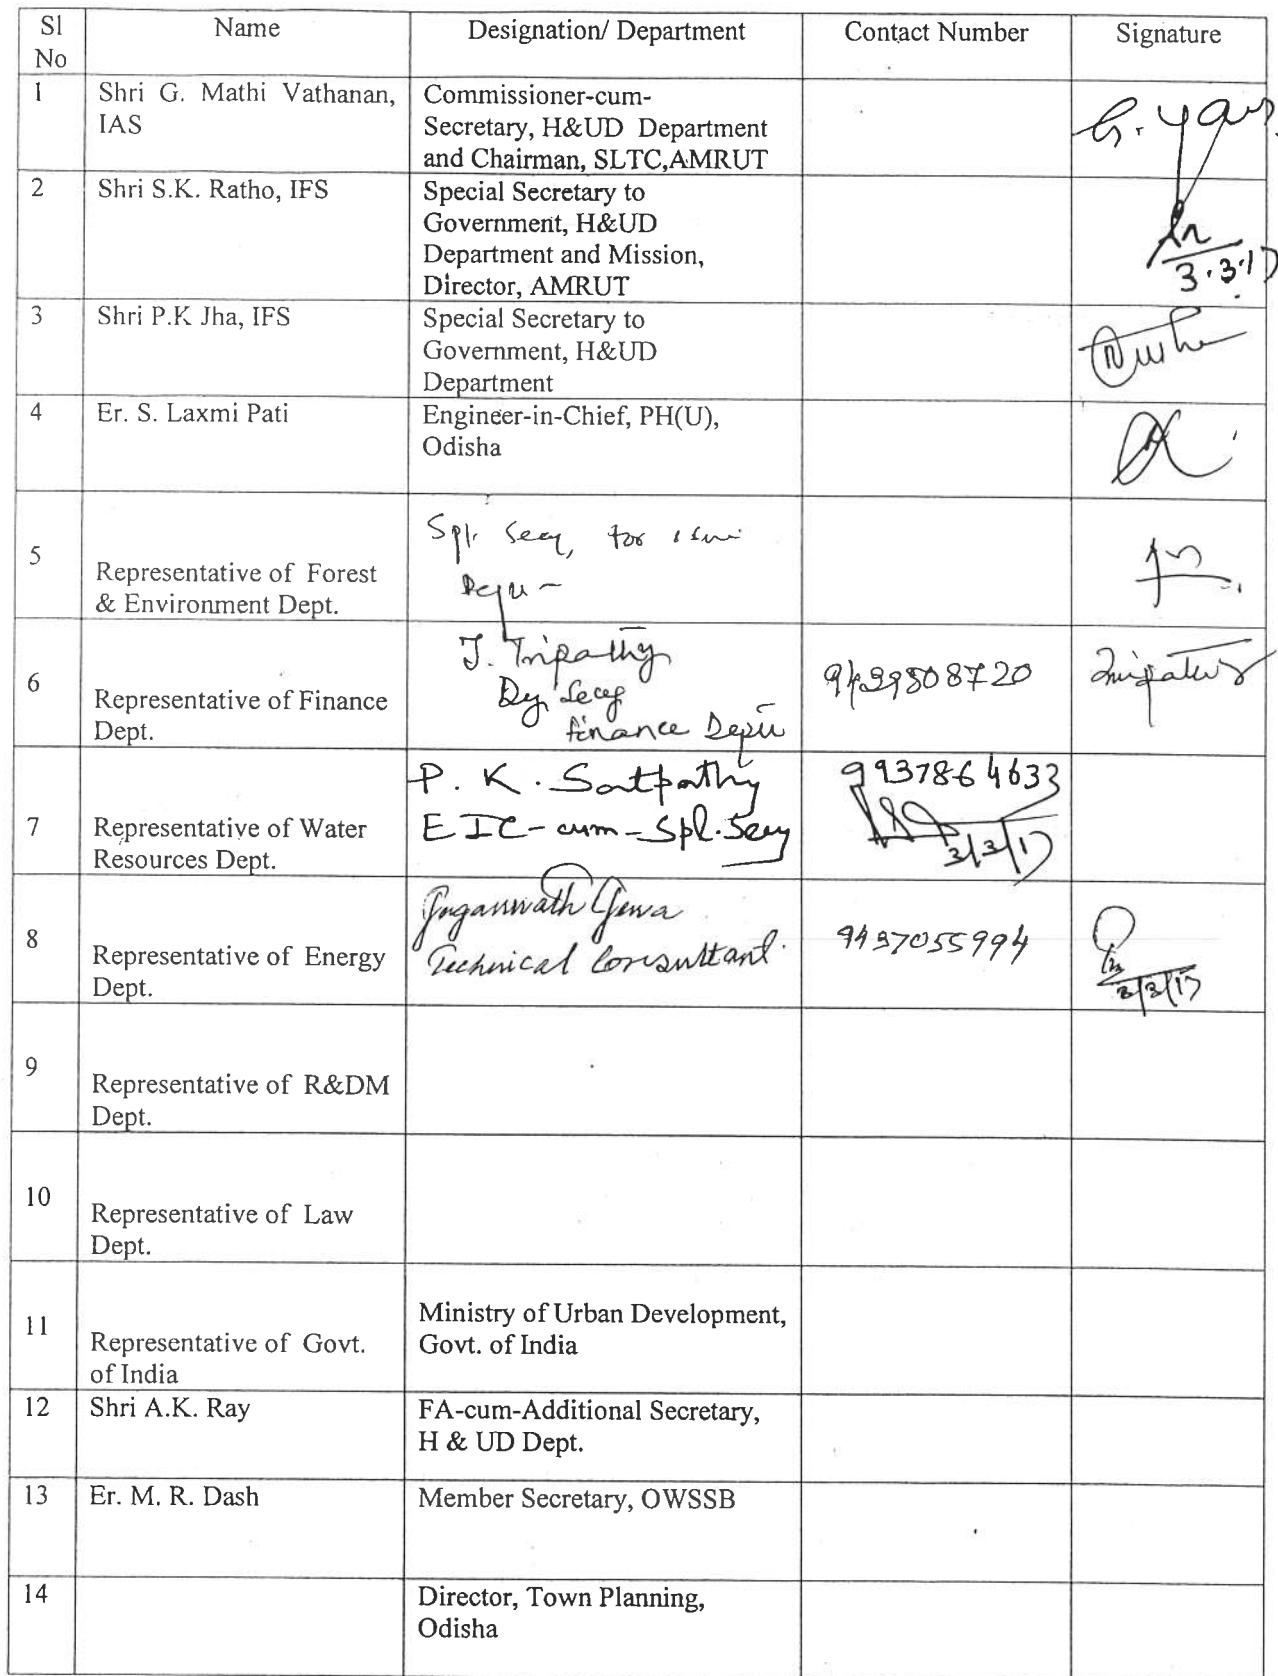 Sl No
Name
Designation/ Department
Contact Number
Signature
1
Shri G. Mathi Vathanan,
IAS
Commissioner-cum-
Secretary, H&UD Department
and Chairman, SLTC,AMRUT
2
Shri S.K. Ratho, IFS
Special Secretary to
Government, H&UD
Department and Mission,
Director, AMRUT
3.3.17
3
Shri P.K Jha, IFS
Special Secretary to
Government, H&UD
Department
4
Er. S. Laxmi Pati
Engineer-in-Chief, PH(U),
Odisha
5
Representative of Forest
& Environment Dept.
Spl. Secy,
6
Representative of Finance
Dept.
J. Tripathy
Dy. Secy
Finance Dept
Tripathy
7
Representative of Water
Resources Dept.
P. K. Satpathy
EIC-cum-Spl.Secy
9937864633
3/3/17
8
Representative of Energy
Dept.
Jagannath Jena
Technical Consultant
9437055994
3/3/17
9
Representative of R&DM
Dept.
10
Representative of Law
Dept.
11
Representative of Govt.
of India
Ministry of Urban Development,
Govt. of India
12
Shri A.K. Ray
FA-cum-Additional Secretary,
H & UD Dept.
13
Er. M. R. Dash
Member Secretary, OWSSB
14
Director, Town Planning,
Odisha